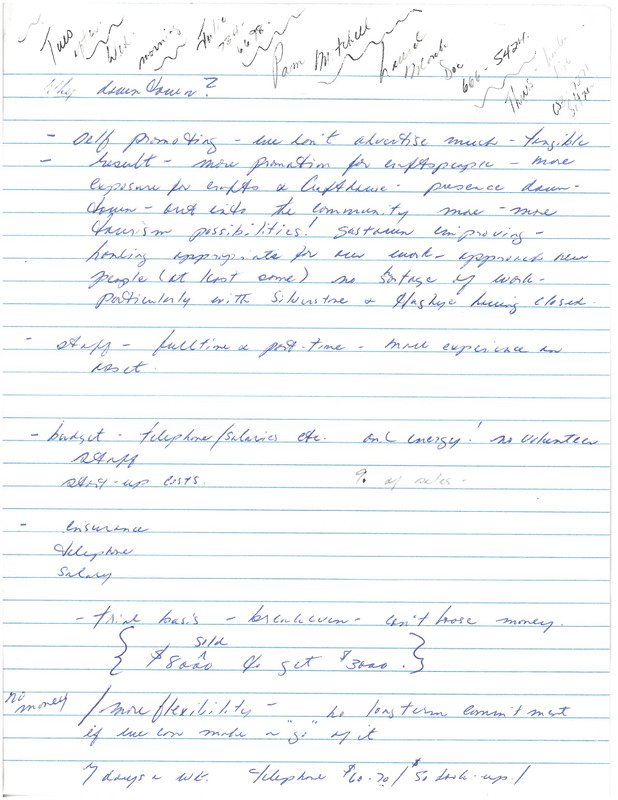 Tues
Wed. morning
Julie
6698
Pam Mitchell
666-5424.
Thurs -
Why downtown?
- self promoting - we don't advertise much - tangible
- result - more promotion for craftspeople - more
exposure for crafts & presence down-
town - but into the community more - more
tourism possibilities! improving -
appropriate for new work - approach new
people (at least some) no sortage of work -
particularly with Silverstone & having closed.
- staff - fulltime & part-time - more experience an
asset.
- budget - telephone/salaries etc. and energy! no volunteer
staff
start-up costs. % of sales -
- insurance
telephone
salary
- trial basis - breakeven - can't loose money.
{ $8000 sold to get $3000. }
no money / more flexibility - no longterm commitment
if we can make a "go" of it
7 days a wk. telephone $60-70 / $50 hook-up /